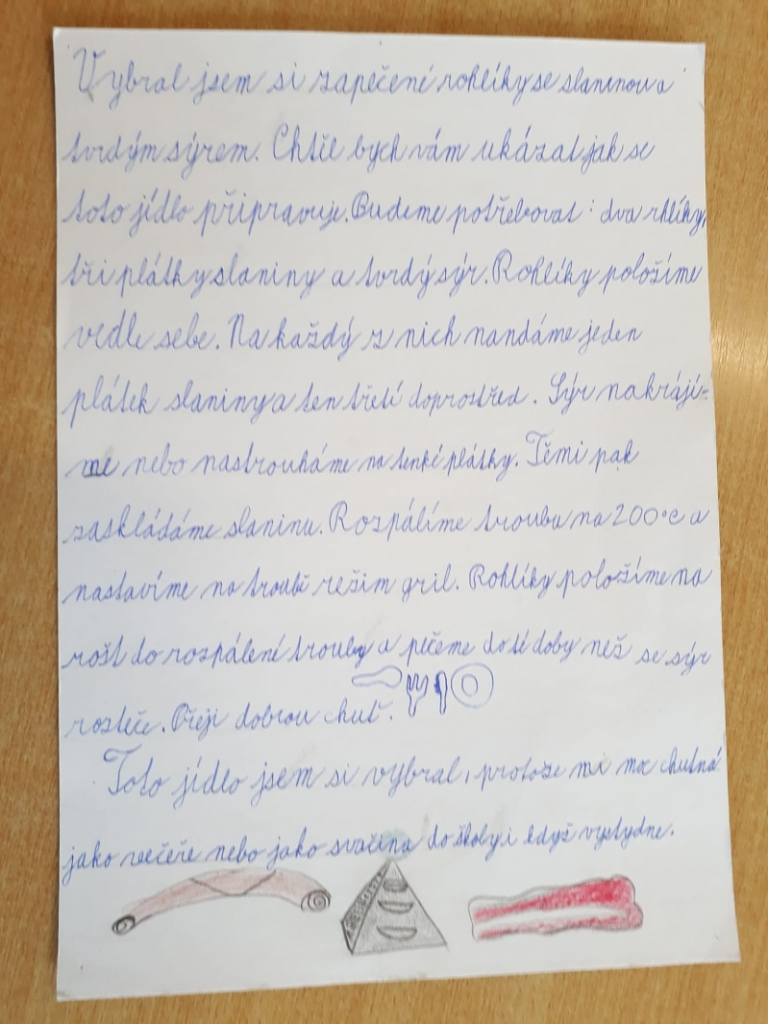 Vybral jsem si zapečené rohlíky se slaninou a
tvrdým sýrem. Chtěl bych vám ukázat jak se
toto jídlo připravuje. Budeme potřebovat : dva rhlíky,
tři plátky slaniny a tvrdý sýr. Rohlíky položíme
vedle sebe. Na každý z nich nandáme jeden
plátek slaniny a ten třetí doprostřed. Sýr nakrájí-
me nebo nastrouháme na tenké plátky. Těmi pak
zaskládáme slaninu. Rozpálíme troubu na 200°C a
nastavíme na troubě režim gril. Rohlíky položíme na
rošt do rozpálení trouby a pečeme do té doby než se sýr
rozteče. Přeji dobrou chuť.
Toto jídlo jsem si vybral, protože mi moc chutná
jako večeře nebo jako svačina do školy i když vystydne.